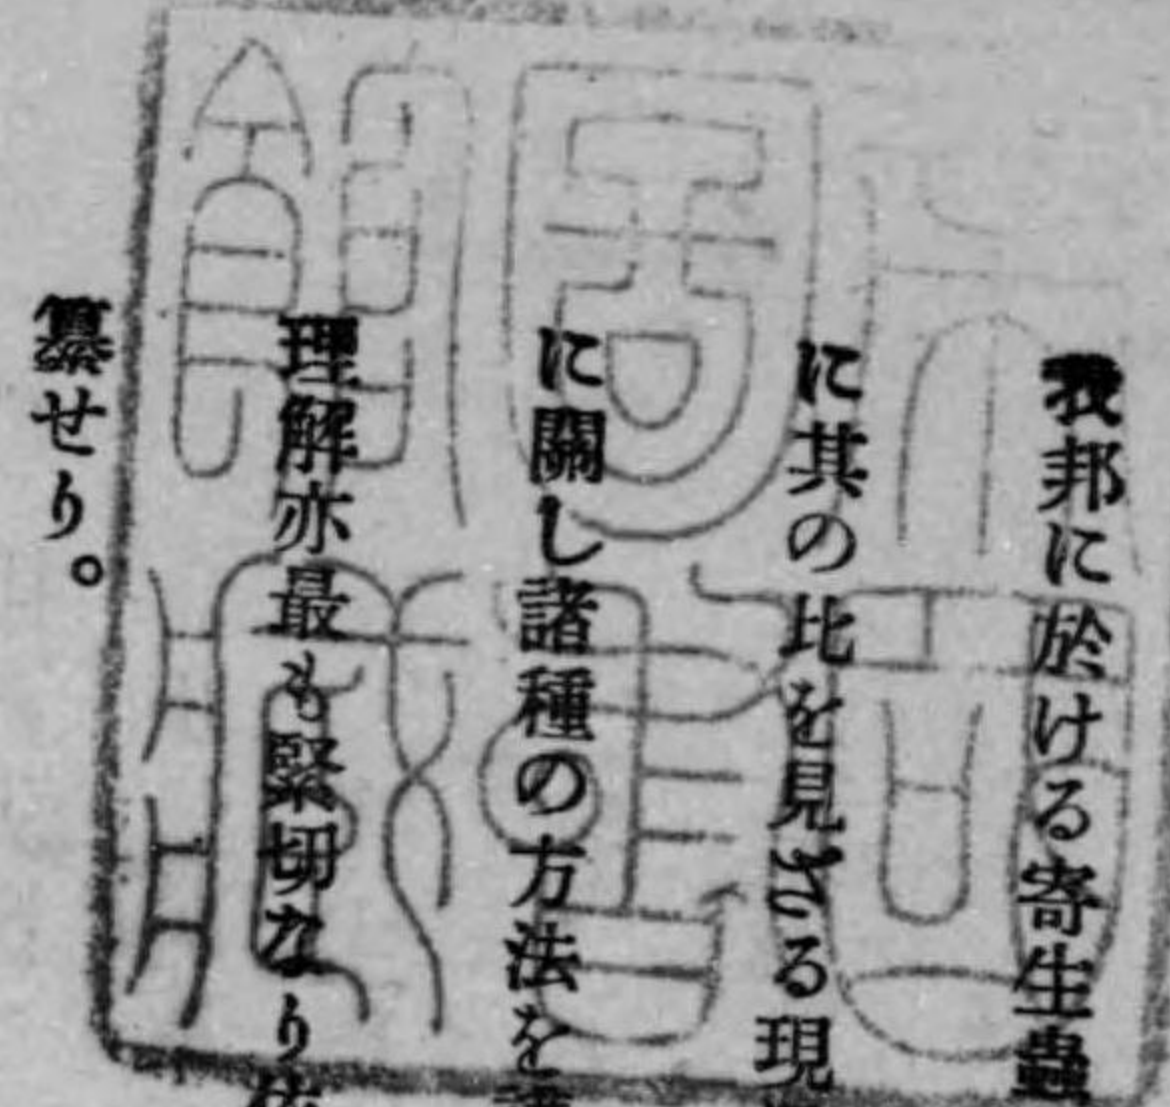 我邦に於ける寄生蟲
に其の比を見ざる現
に關し諸種の方法を
理解亦最も緊切なり
纂せり。